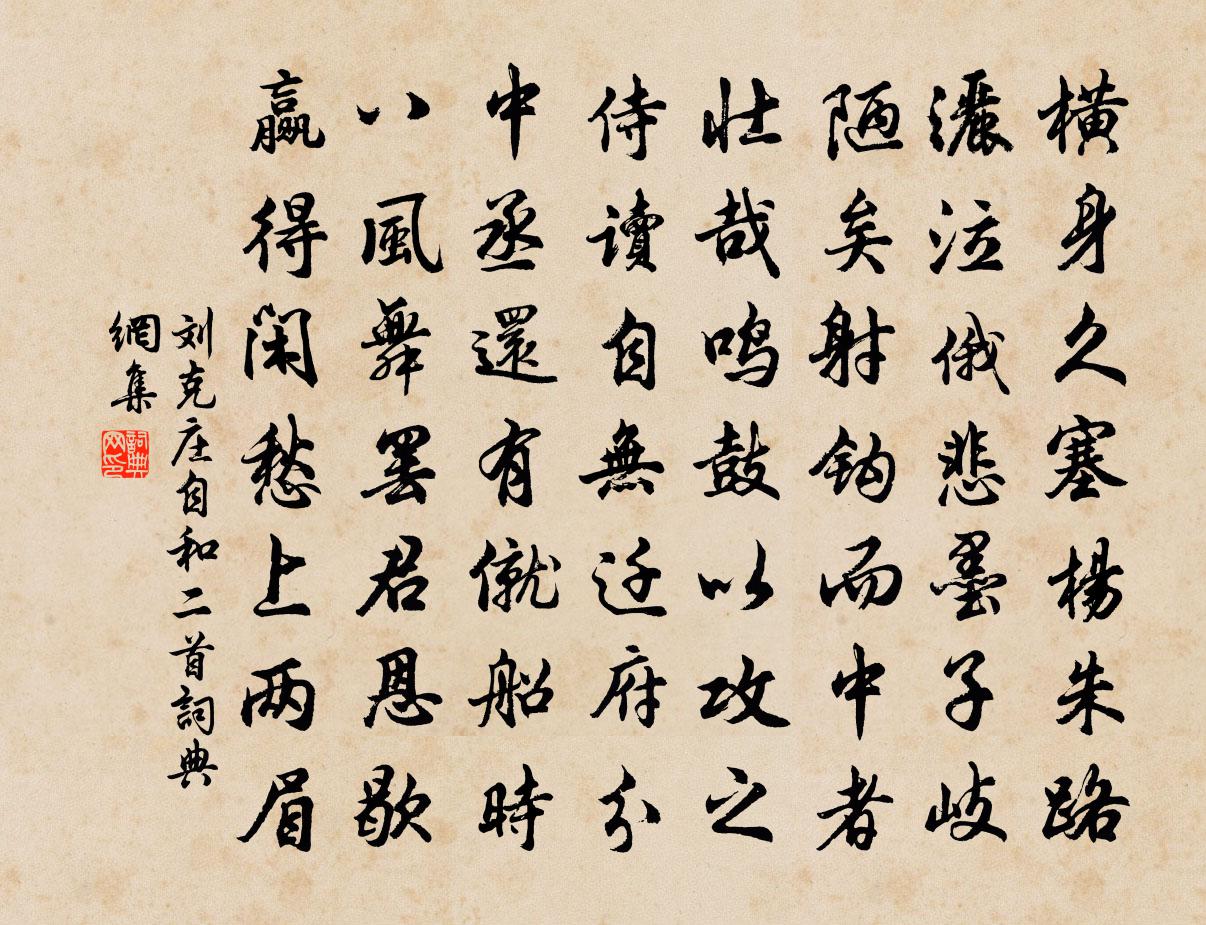 橫身久塞楊朱路
灑泣俄悲墨子岐
陋矣射鈎而中者
壯哉鸣鼓以攻之
侍讀自無迁府分
中丞還有僦船時
八風舞罢君恩歇
赢得闲愁上两眉
刘克庄自和二首詞典
網集
詞典网印